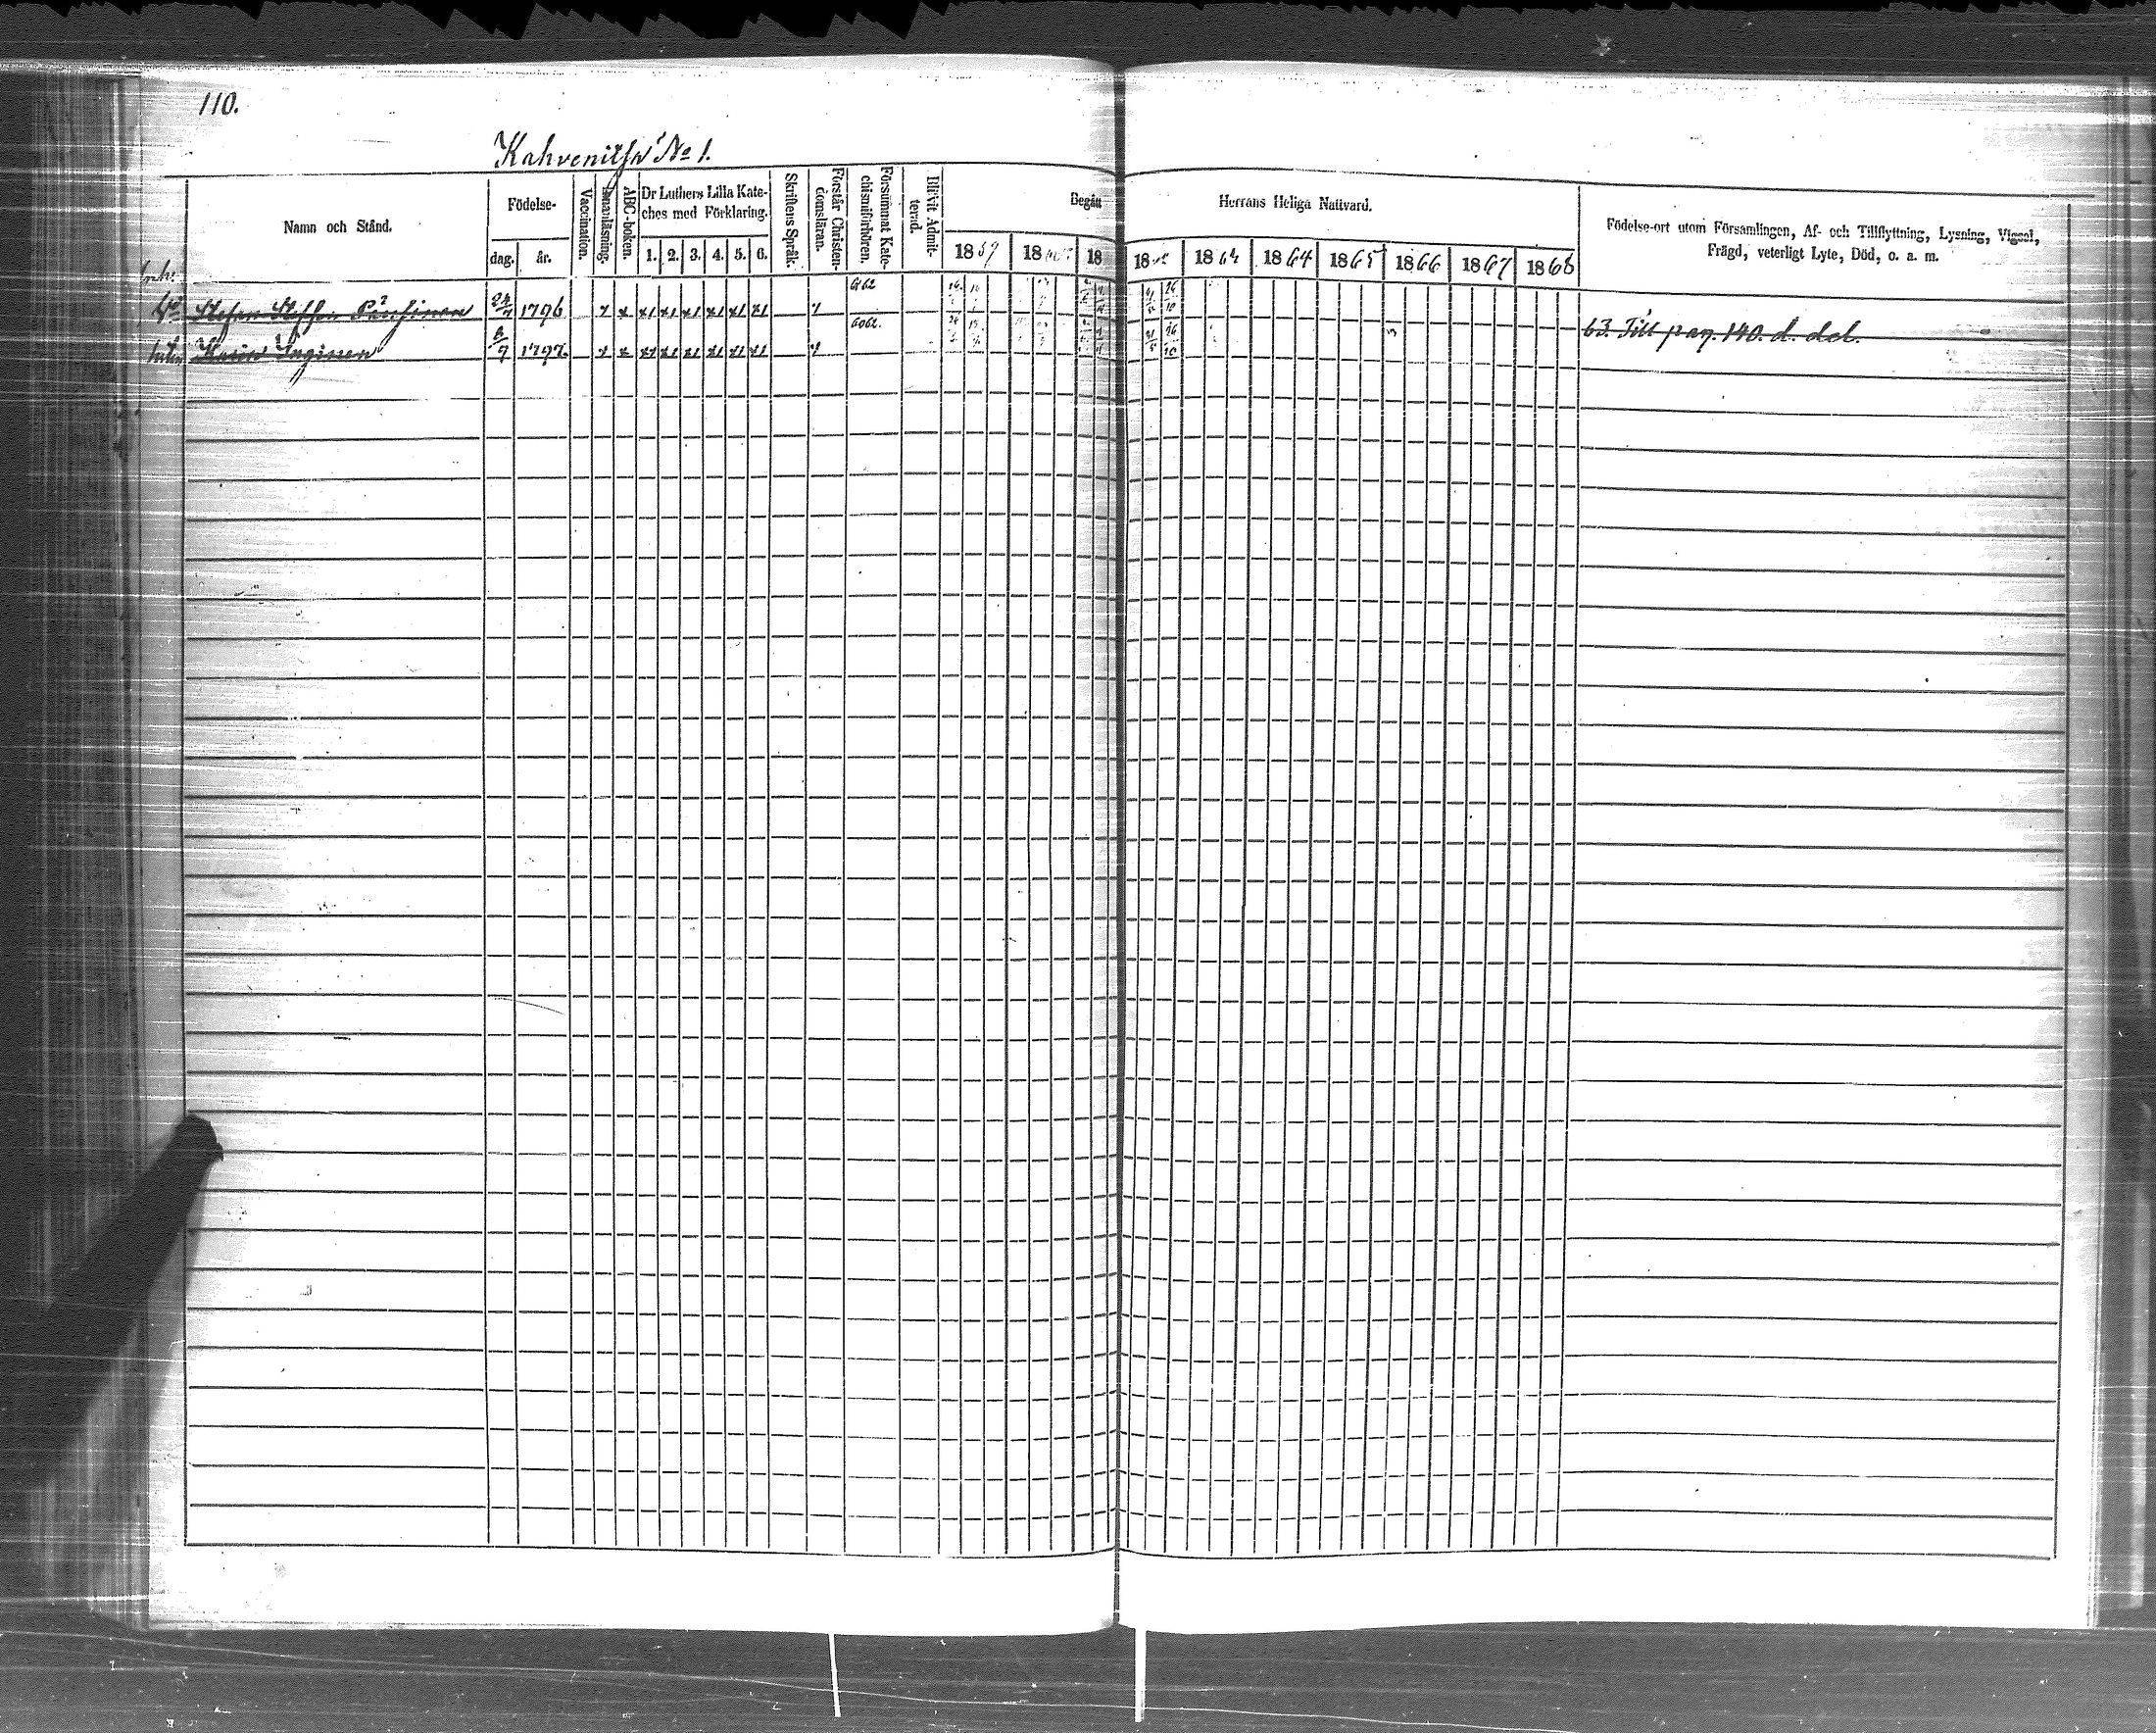 110.
Kahvenitsa No 1.
Namn och Stånd.
Födelse-
dag.
år.
Vaccination.
Innanläsning.
ABC-boken.
Dr Luthers Lilla Kate-
ches med Förklaring.
1. 2. 3. 4. 5. 6.
Skriftens Språk.
Förstår Christen-
domsläran.
Försummat Kate-
chismiförhören.
Blifvit Admit-
terad.
Begått Herrans Heliga Nattvard.
1859 18 18 18 18 1864 1865 1866 1867 1868
Födelse-ort utom Församlingen, Af- och Tillflyttning, Lysning, Vigsel,
Frägd, veterligt Lyte, Död, o. a. m.
Stefan 24/7 1796 x x x1 x1 x1 x1 x1 x1
Karin Inginen 1797. x x x1 x1 x1 x1 x1 x1 6062.
63. Till pag. 140. d. del.